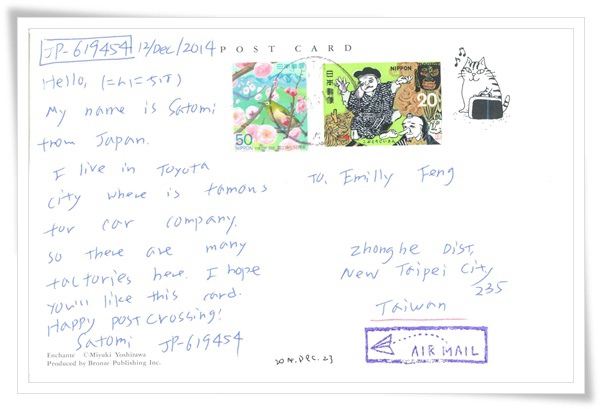 JP-619454 12/Dec/2014
POST CARD
Hello, (こんにちは)
My name is Satomi
from Japan.
I live in Toyota
city where is famous
for car company.
so there are many
factories here. I hope
you'll like this card.
Happy postcrossing!
Satomi JP-619454
Enchante ©Miyuki Yoshizawa
Produced by Bronze Publishing Inc.
日本郵便
50
NIPPON
NIPPON
日本郵便
20
To. Emilly Feng
Zhonghe Dist,
New Taipei City
235
Taiwan
AIR MAIL
2014.DEC.23